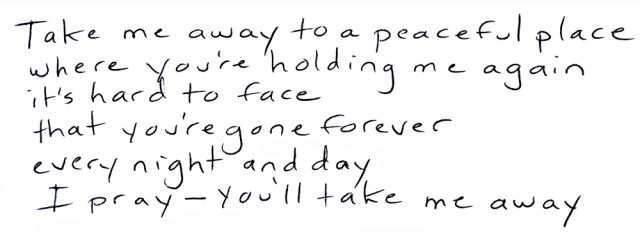 Take me away to a peaceful place
where you're holding me again
it's hard to face
that you're gone forever
every night and day
I pray – you'll take me away